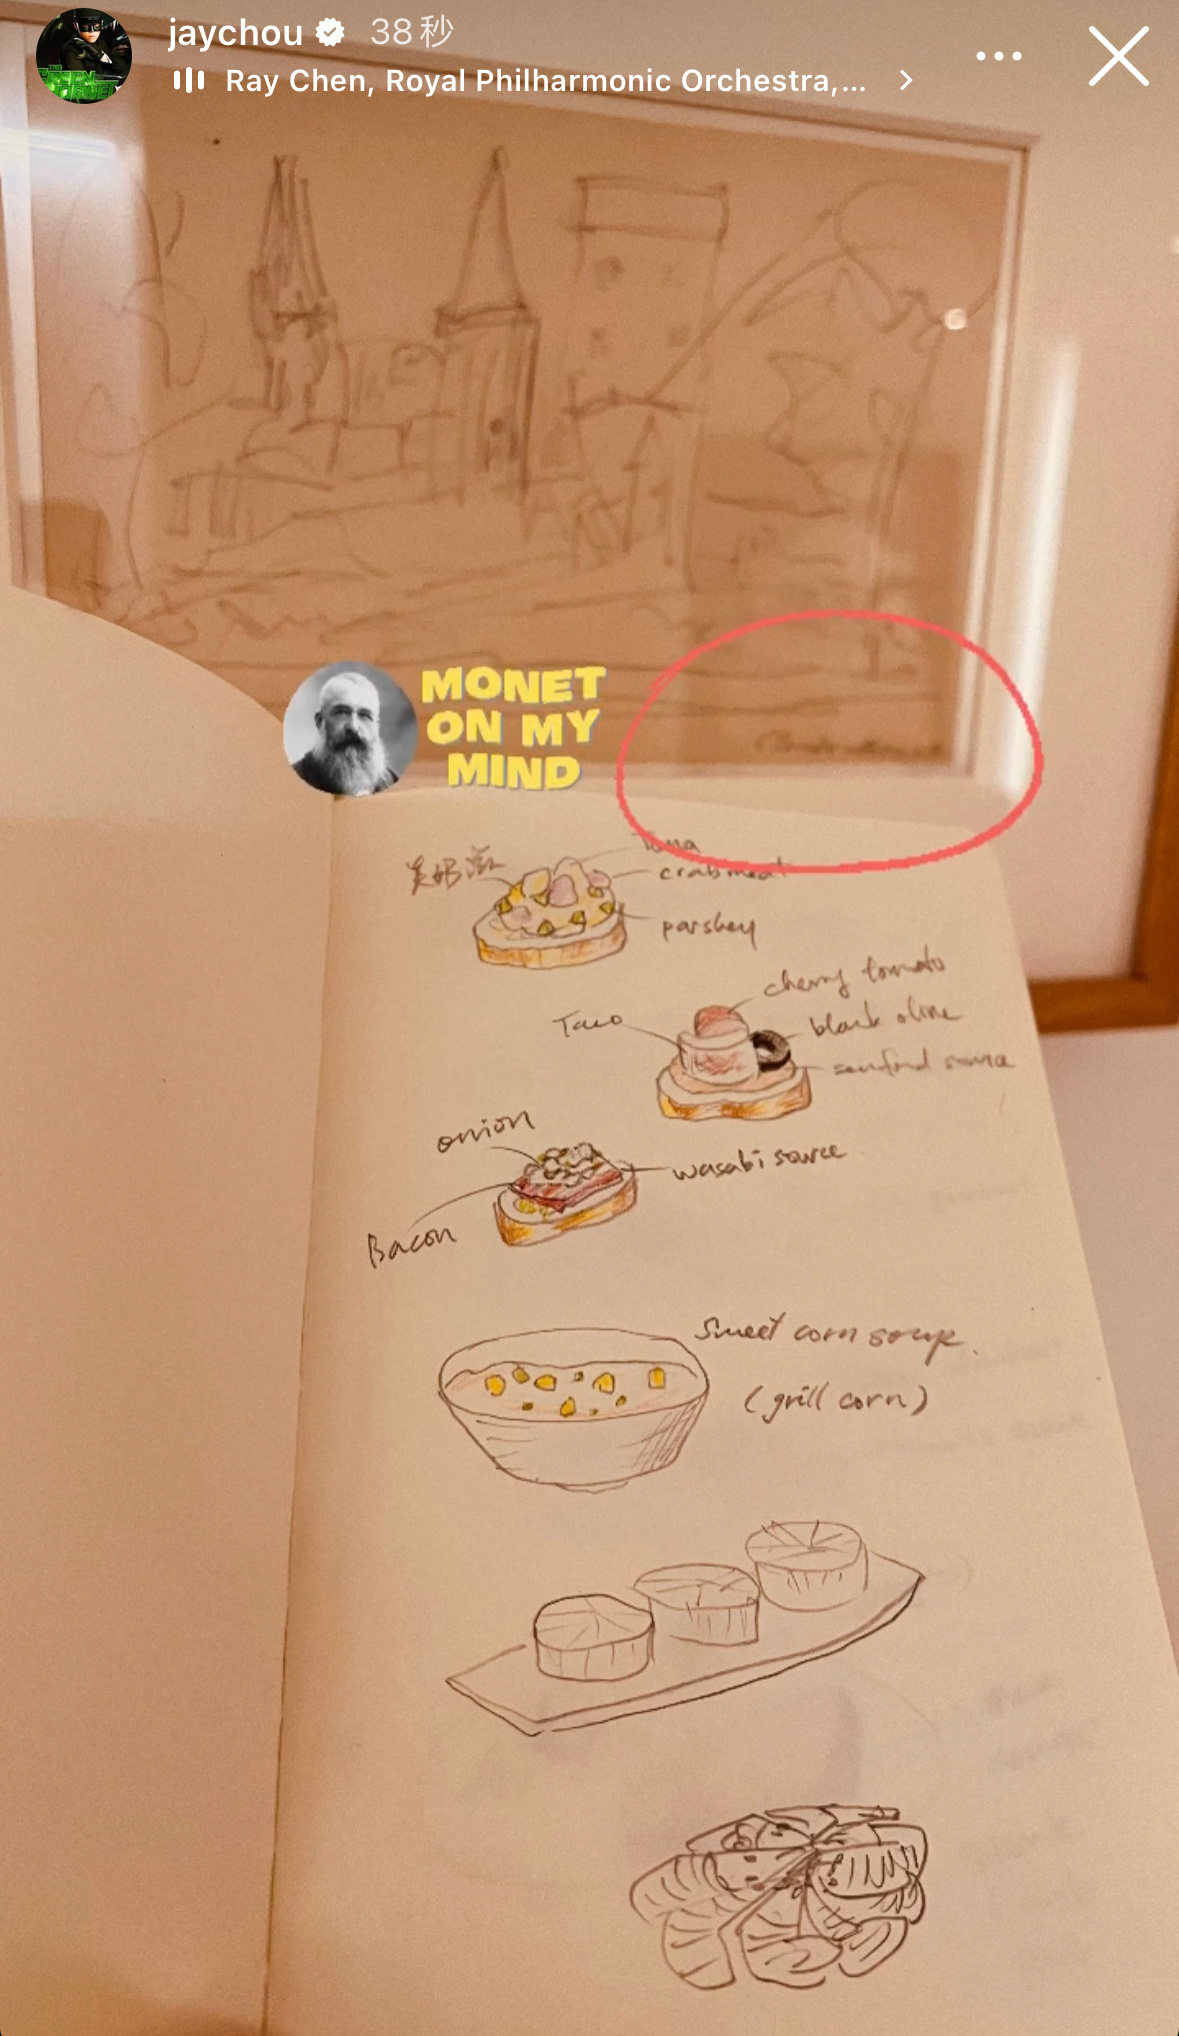 jaychou 38秒
Ray Chen, Royal Philharmonic Orchestra,...
MONET
ON MY
MIND
美奶滋
Tuna
crabmeat
parsley
cherry tomato
Taco
black olive
seafood source
onion
wasabi source
Bacon
Sweet corn soup.
(grill corn)